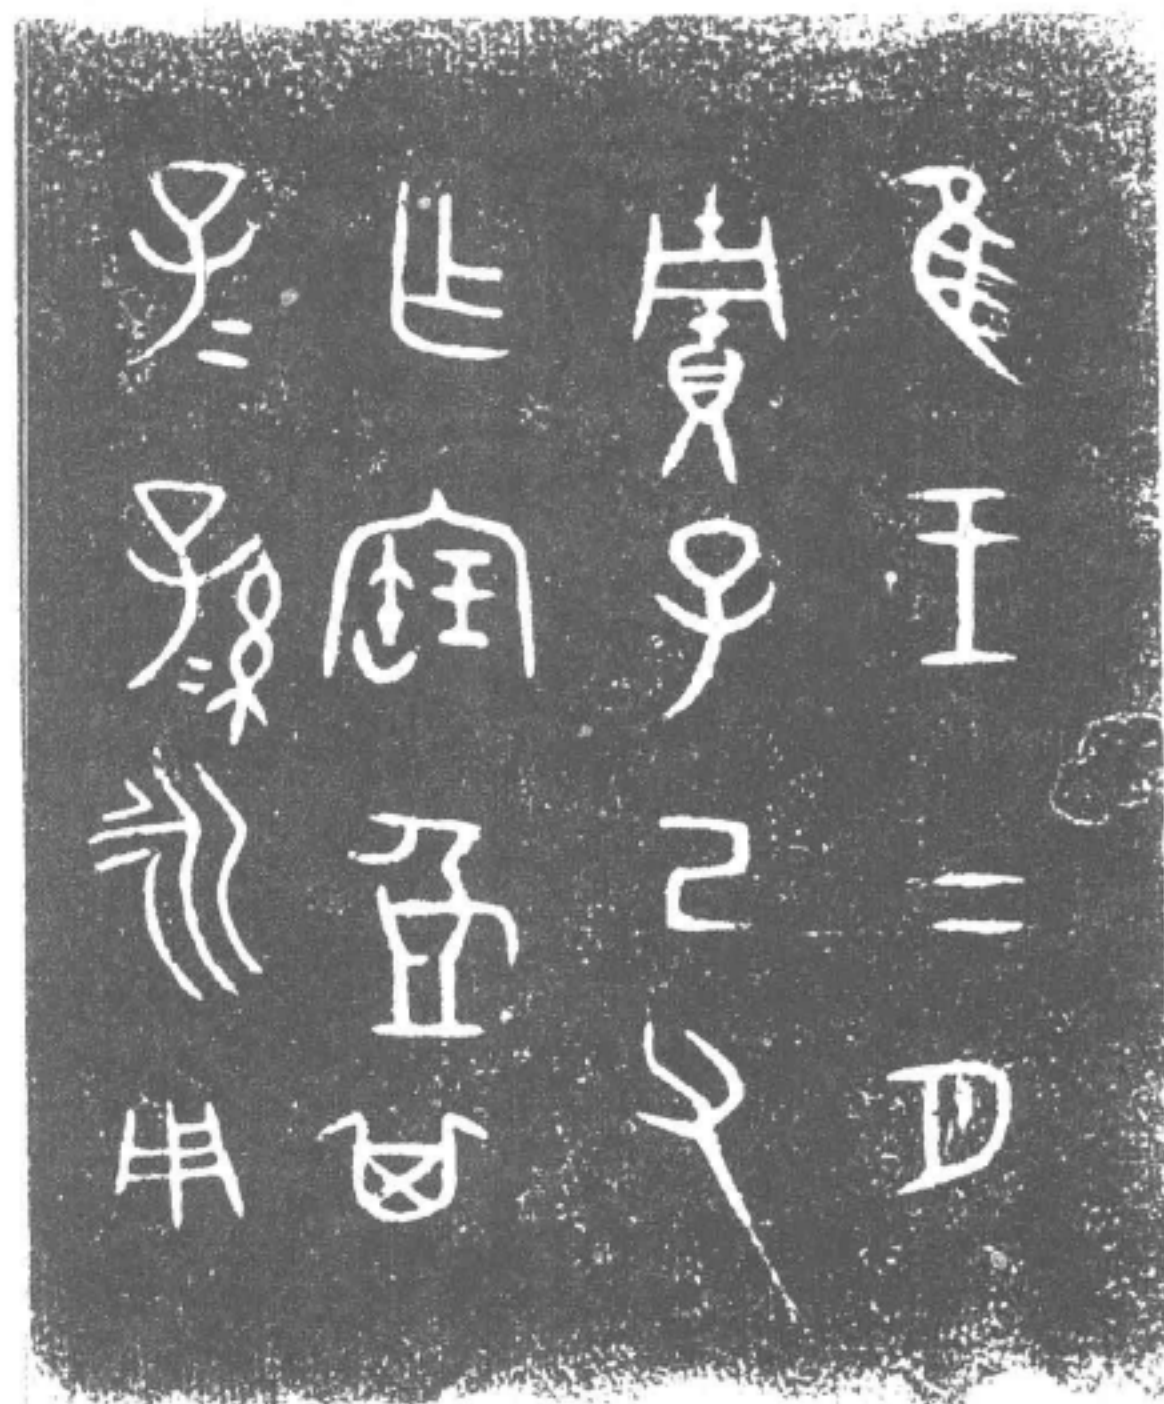 隹王二月
貯子己父
乍寶匜其
子=孫=永用